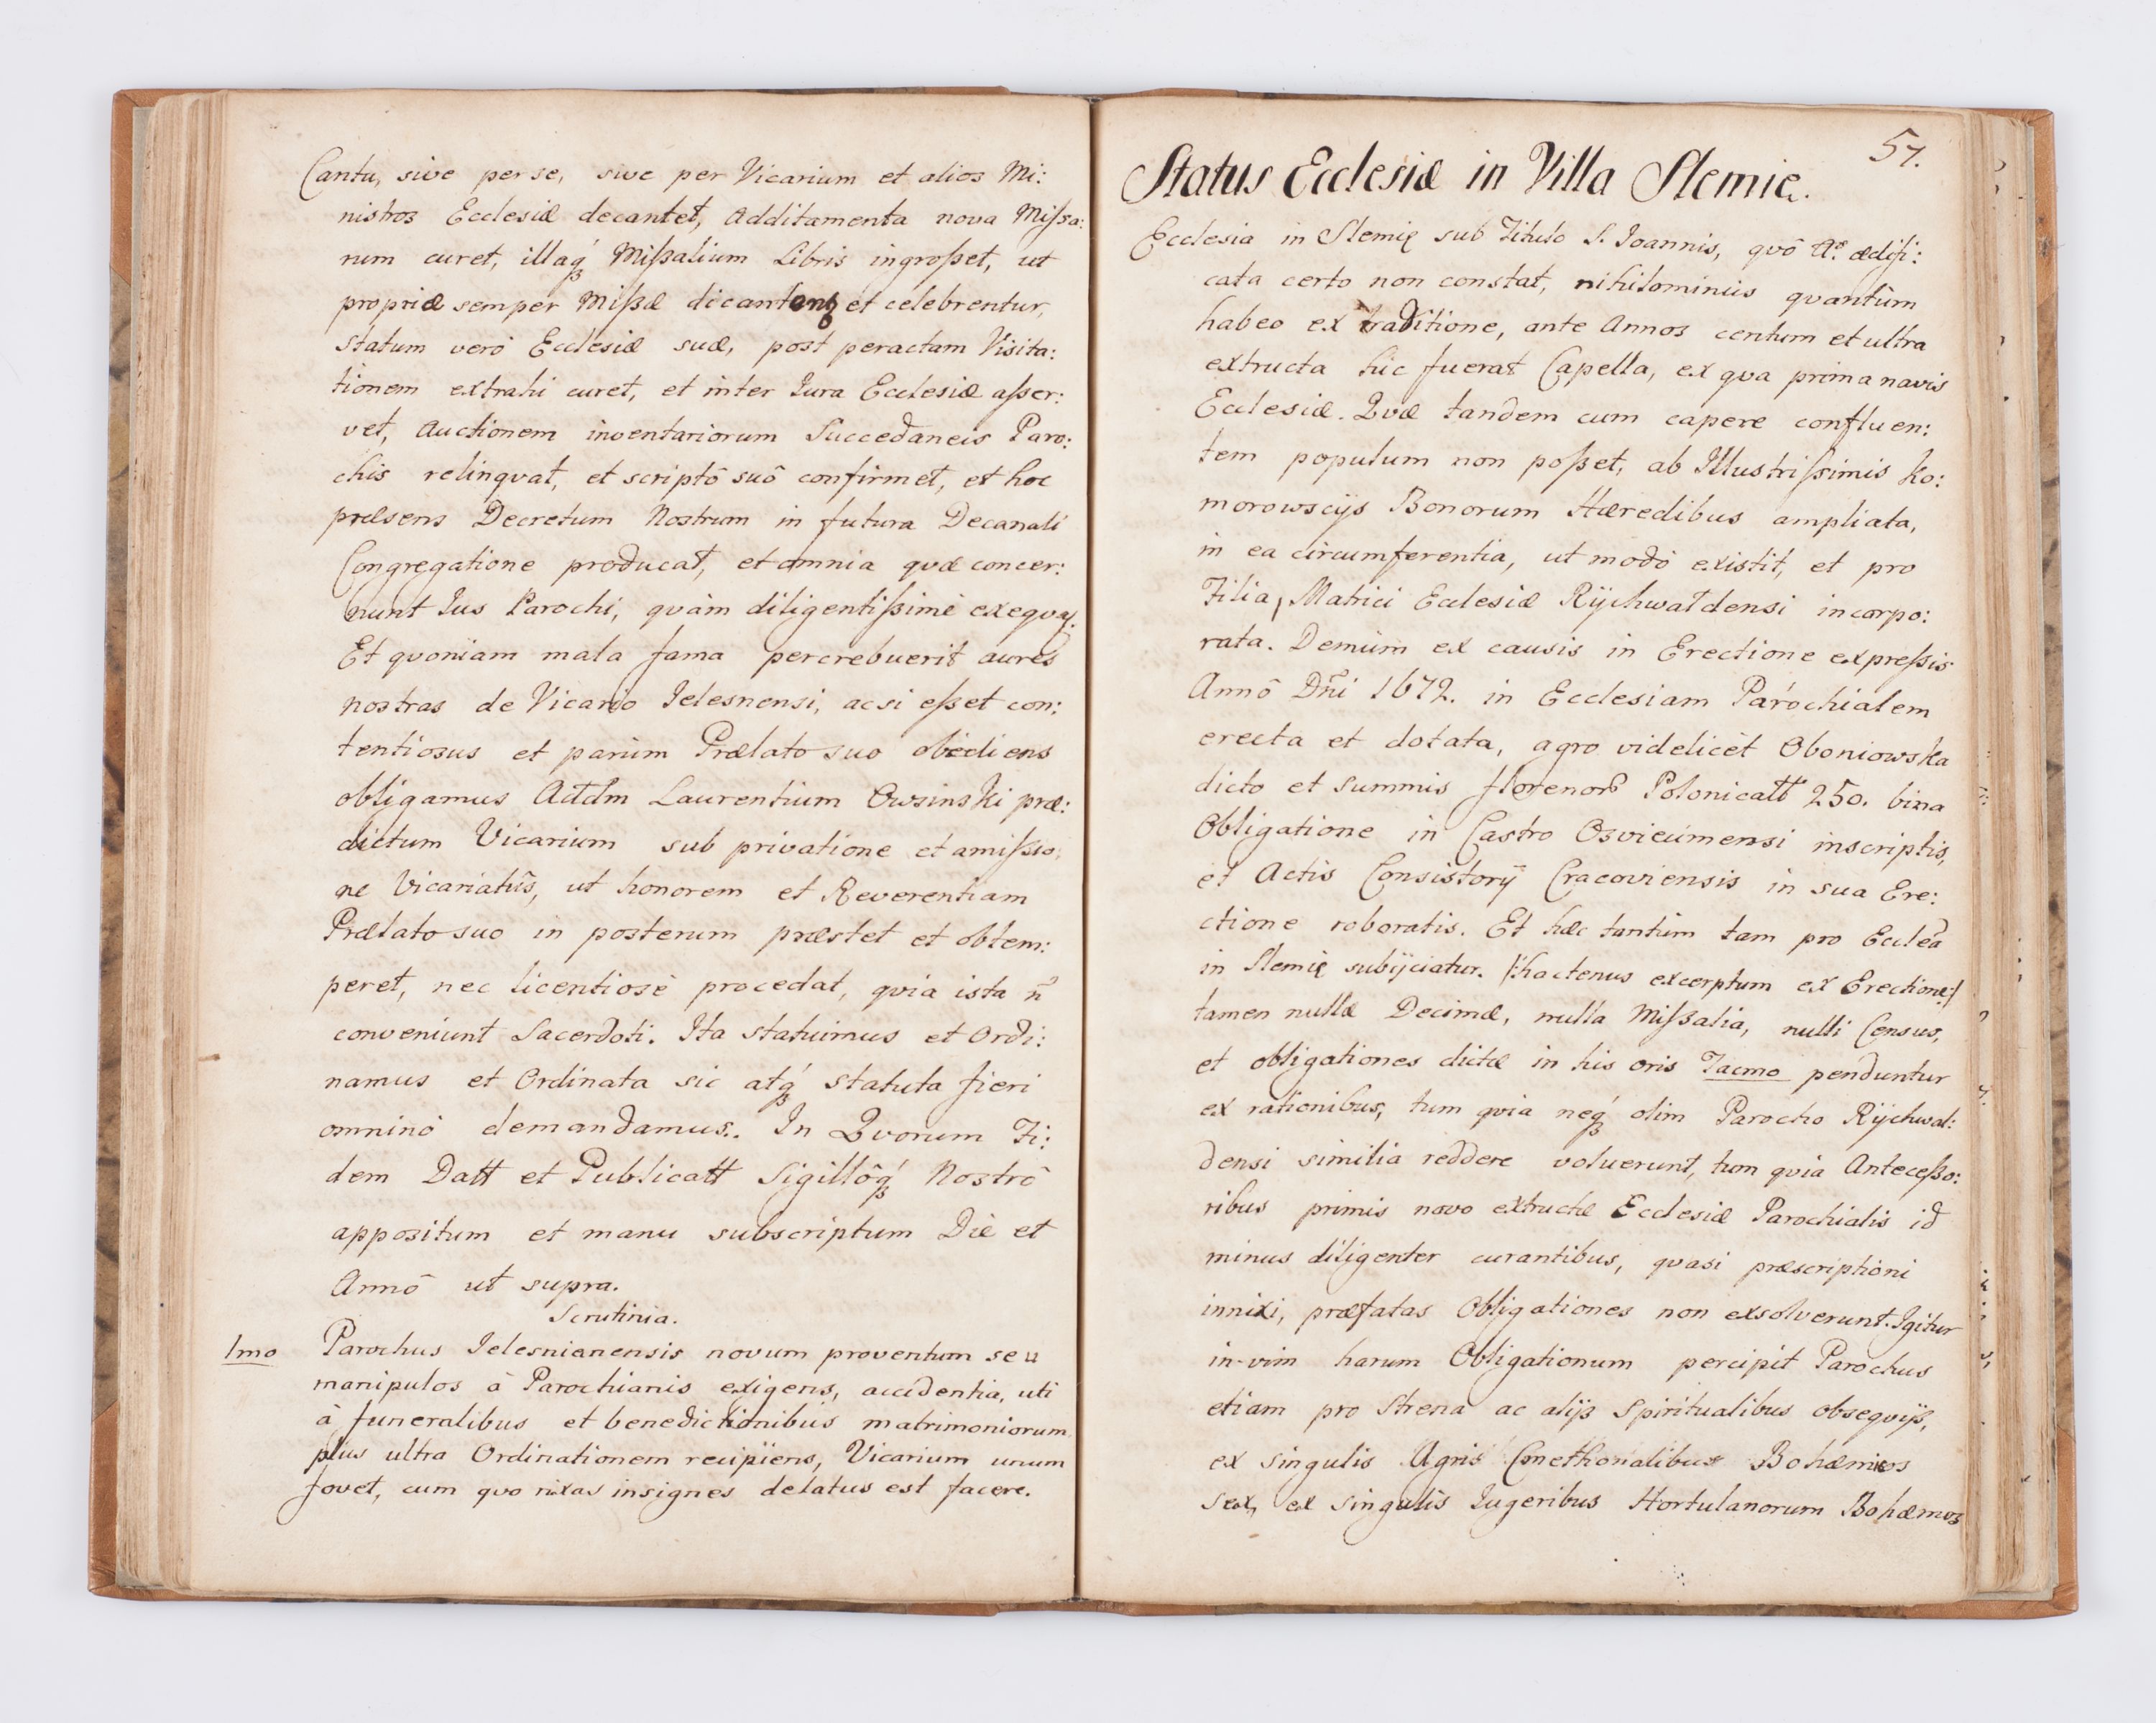 Cantu, sive per se, sive per Vicarium et alios Mi:
nistros Ecclesiæ decantet, Additamenta nova Mißa:
rum curet, illaqꝫ Mißalium Libris ingroßet, ut
propriæ semper Mißæ dicant et celebrentur,
Statum verò Ecclesiæ suæ, post peractam Visita:
tionem extrahi curet, et inter Iura Ecclesiæ aßer:
vet, Auctionem inventariorum Succedaneis Paro:
chis relinqvat, et scriptô suô confirmet, et hoc
præsens Decretum Nostrum in futura Decanali
Congregatione producat, et omnia qvæ concer:
nunt Ius Parochi, qvàm diligentißimè exeqvat.
Et qvoniam mala fama percrebuerit aures
nostras de Vicario Ielesnensi, acsi eßet con:
tentiosus et parùm Prælato suo obediens
obligamus Addm Laurentium Owsinski præ:
dictum Vicarium sub privatione et amißio:
ne Vicariatûs, ut honorem et Reverentiam
Prælato suo in posterum præstet et obtem:
peret, nec licentiosè procedat, qvia ista ñ
conveniunt Sacerdoti. Ita statuimus et Ordi:
namus et Ordinata sic atqꝫ statuta fieri
omninò demandamus. In Qvorum Fi:
dem Datt et Publicatt Sigillôqꝫ Nostrô
appositum et manu subscriptum Die et
Annô ut supra.
Scrutinia.
1mo Parochus Ielesnianensis novum proventum seu
manipulos à Parochianis exigens, accidentia, uti
à funeralibus et benedictionibus matrimoniorum
plus ultra Ordinationem recipiens, Vicarium unum
fovet, cum qvo rixas insignes delatus est facere.
57.
Status Ecclesiæ in Villa Slemię.
Ecclesia in Slemię sub Titulo S. Ioannis, qvô Aº ædifi:
cata certo non constat, nihilominùs qvantùm
habeo ex traditione, ante Annos centum et ultra
extructa hic fuerat Capella, ex qva prima navis
Ecclesiæ. Qvæ tandem cum capere confluen:
tem populum non poßet, ab Illustrißimis Ko:
morowscijs Bonorum Hæredibus ampliata,
in ea circumferentia, ut modò existit, et pro
Filia, Matrici Ecclesiæ Rÿchwaldensi incorpo:
rata. Demùm ex causis in Erectione expreßis
Annô Dñi 1672. in Ecclesiam Parochialem
erecta et dotata, agro videlicèt Oboniowska
dicto et summis florenor Polonicatt 250. bina
Obligatione in Castro Osviecimensi inscriptis,
et Actis Consistorÿ Cracoviensis in sua Ere:
ctione roboratis. Et hæc tantùm tam pro Ecclea
in Slemię subijciatur. /:hactenus excerptum ex Erectione:/
tamen nullæ Decimæ, nulla Mißalia, nulli Census,
et obligationes dictæ in his oris Tacmo penduntur
ex rationibus, tum qvia neqꝫ olim Parocho Rÿchwal:
densi similia reddere voluerunt, tum qvia Anteceßo:
ribus primis novo extructæ Ecclesiæ Parochialis id
minus diligenter curantibus, qvasi præscriptioni
innixi, præfatas Obligationes non exsolverunt. Igitur
in vim harum Obligationum percipit Parochus
etiam pro Strena ac alijs Spiritualibus obseqvijs,
ex singulis Agris Cmethonalibus Bohæmicos
sex, ex singulis Iugeribus Hortulanorum Bohæmos